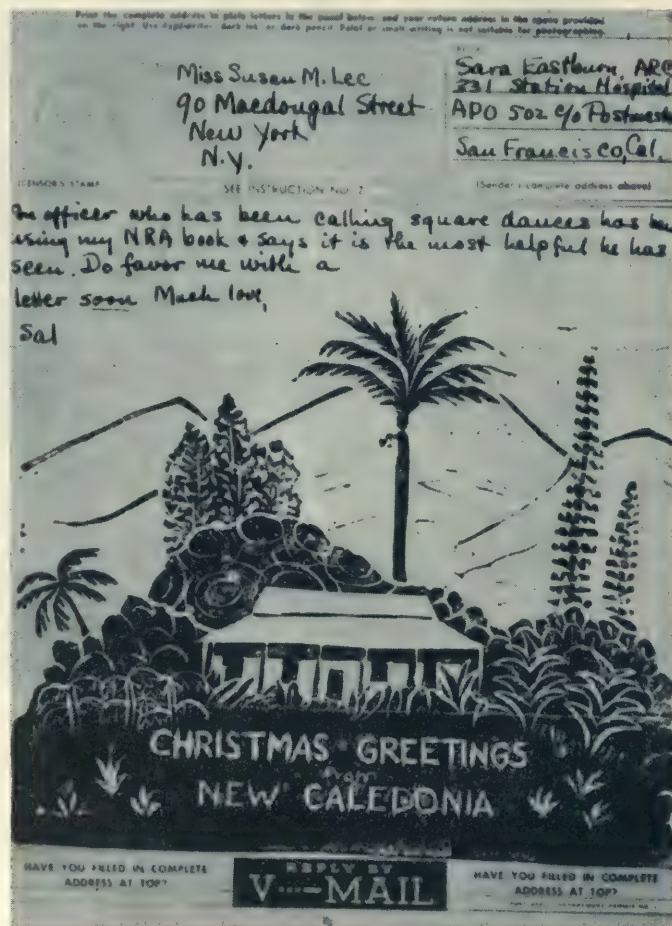 Print the complete address in plain letters in the panel below, and your return address in the space provided
on the right. Use typewriter, dark ink, or dark pencil. Faint or small writing is not suitable for photographing.
Miss Susan M. Lee
90 Macdougal Street
New York
N.Y.
Sara Eastburn, ARC
331 Station Hospital
APO 502 c/o Postmast
San Francisco, Cal.
CENSOR'S STAMP
SEE INSTRUCTION NO. 2
(Sender's complete address above)
An officer who has been calling square dances has been
using my NRA book & says it is the most helpful he has
seen. Do favor me with a
letter soon Much love,
Sal
CHRISTMAS GREETINGS
from
NEW CALEDONIA
HAVE YOU FILLED IN COMPLETE
ADDRESS AT TOP?
REPLY BY
V···—MAIL
HAVE YOU FILLED IN COMPLETE
ADDRESS AT TOP?